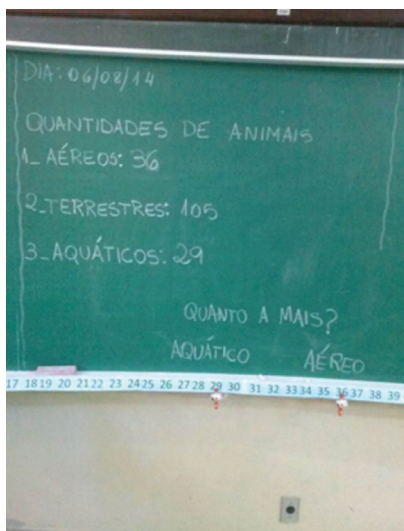 DIA: 06/08/14
QUANTIDADES DE ANIMAIS
1_ AÉREOS: 36
2_TERRESTRES: 105
3_AQUÁTICOS: 29
QUANTO A MAIS?
AQUÁTICO AÉREO
17 18 19 20 21 22 23 24 25 26 27 28 29 30 31 32 33 34 35 36 37 38 39